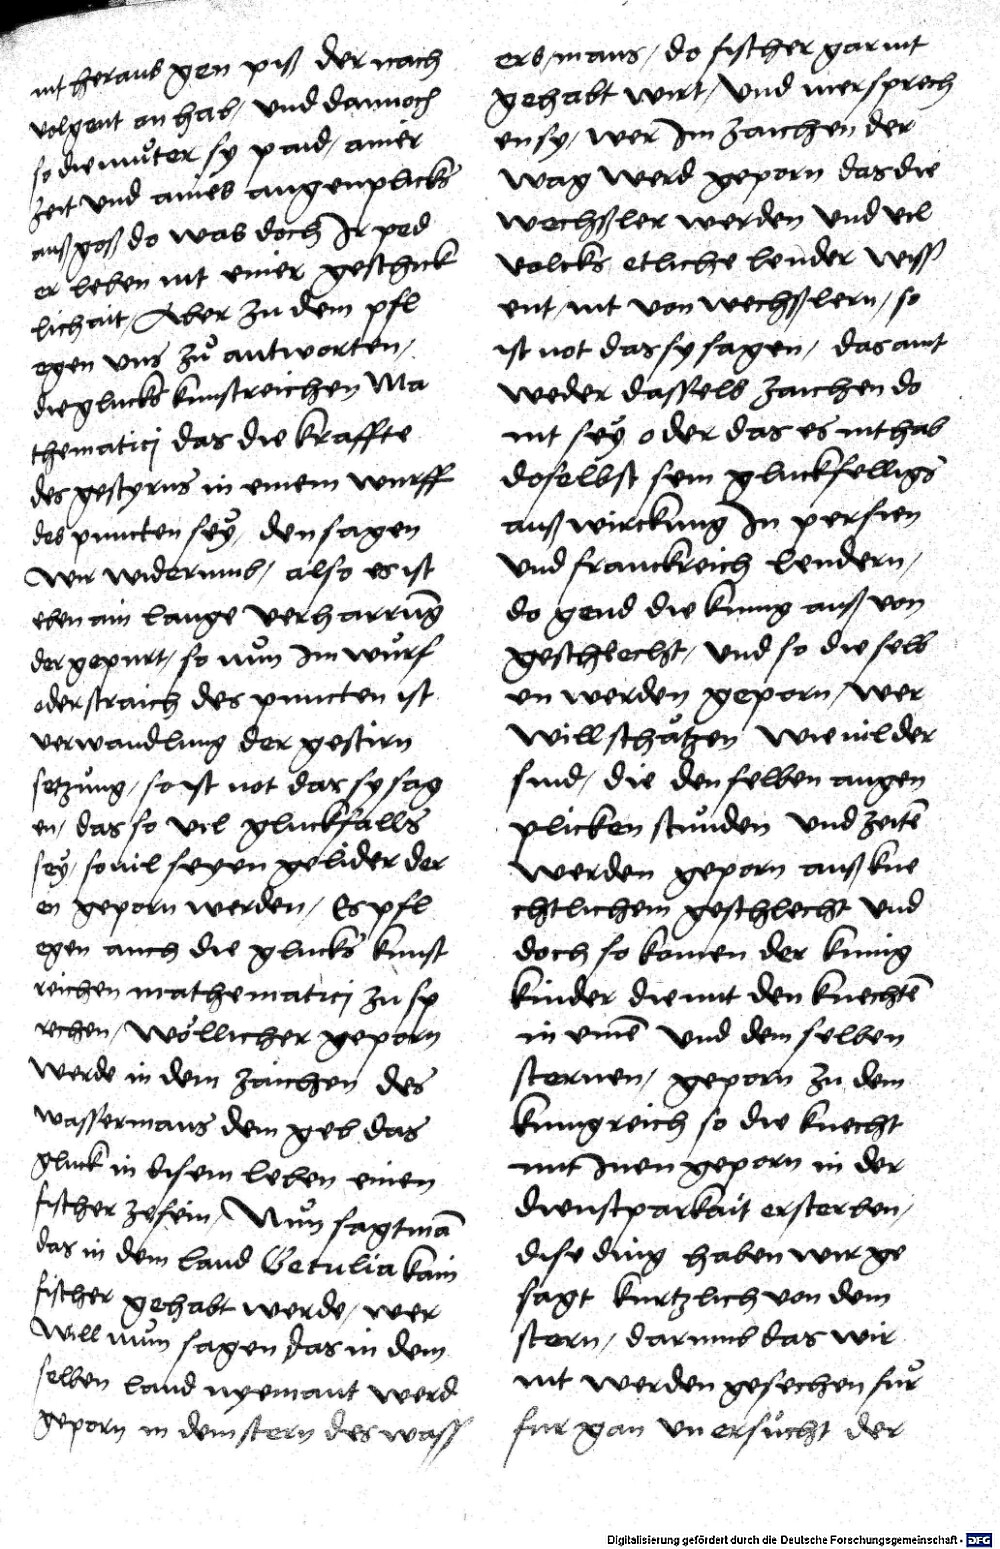 nit heraus gen piß der nach
volgent an hab, und dannoch
so die muͦter sy paid, ainer
zeit und aines augenplicks
außgoß do was doch Ir yed
er leben nit einer geschick
lichait, Aber zu dem pfl
egen uns zuͦ antworten,
die glucks kunstreichen Ma
thematicj das die kraffte
des gestyrns in einem wurff
des puncten sey, den sagen
wir widerumb, also es ist
eben ain lange verharrūg
der gepurt, so nuͦn Im wuͦrf
oder straich des puncten ist
verwandlung der gestirn
setzung, so ist not das sy sag
en, das so vil gluckfalls
sey, so vil seyen gelider der
en geporn werden, Es pfl
egen auch die glucks kunst
reichen mathematicj zu sp
rechen, Woͤllicher geporn
werde in dem zaichen des
wassermans dem geb das
gluck in disem leben einen
fischer zesein, Nuͦn sagt mā
das in dem land Getulia kain
fischer gehabt werde, wer
will nuͦn sagen das in dem
selben land nyemant werd
geporn in dem stern des wass
ers mans, do fischer gar nit
gehabt wirt, Und mer sprech
en sy, wer Im zaichen der
wag werd geporn das die
wechßler werden und vil
volcks etliche lender wiss
ent, nit von wechßlern, so
ist not das sy sagen, das aint
weder dasselb zaichen do
nit sey oder das es nit hab
doselbst sein gluckfelligs
auß wirckung In persien
und franckreich lendern,
do gend die kunig auß von
geschlecht, und so die selb
en werden geporn, wer
will schaͤtzen wie vil der
sind, die den selben augen
plicken stuͦnden und zeitē
werden geporn auß kne
chtlichem geschlecht und
doch so komen der kunig
kinder die mit den knechtē
in einē und dem selben
sternen, geporn zu dem
kunigreich so die knecht
mit Inen geporn in der
dienstparkait ersterben,
dise ding haben wir ge
sagt kurtzlich von dem
stern, darumb das wir
nit werden gesechen fuͦr
fur gan un ersuͦcht der
Digitalisierung gefördert durch die Deutsche Forschungsgemeinschaft - DFG